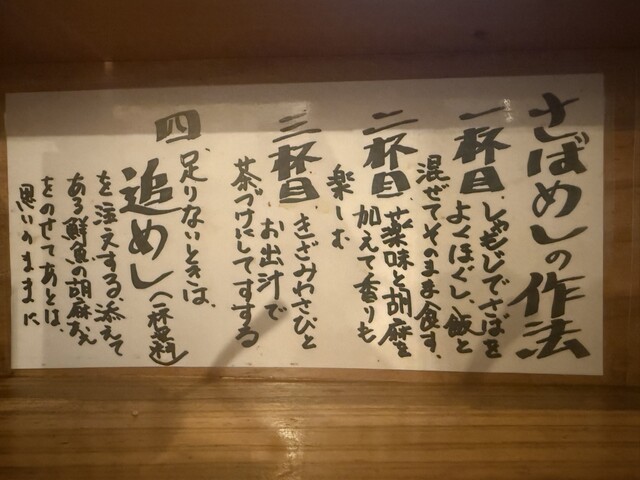 さばめしの作法
一杯目、しゃもじでさばを
よくほぐし、飯と
混ぜてそのまま食す、
二杯目、薬味と胡麻を
加えて香りも
楽しむ
三杯目、きざみわさびと
お出汁で
茶づけにしてすする
四、足りないときは、
追めし(一杯無料)
を注文する、添えて
ある鮮魚の胡麻あえ
をのせてあとは
思いのままに